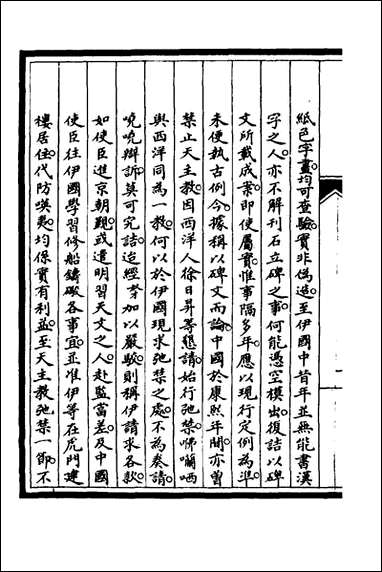 紙色字畫均可查驗實非偽造至伊國中昔年並無能書漢
字之人亦不解刊石立碑之事何能憑空模出復詰以碑
文所載成案即使屬實惟事隔多年應以現行定例為準
未便執古例今據稱以碑文而論中國於康熙年間亦曾
禁止天主教因西洋人徐日昇等懇請始行弛禁咈囒哂
與西洋同為一教何以於伊國現求弛禁之處不為奏請
嘵嘵辯訴莫可究詰迨經 加以嚴駁則稱伊請求各款
如使臣進京朝覲或遣明習天文之人赴監當差及中國
使臣往伊國學習修船鑄礮各事宜並准伊等在虎門建
樓居住代防㗸夷均係實有利益至天主教弛禁一節不